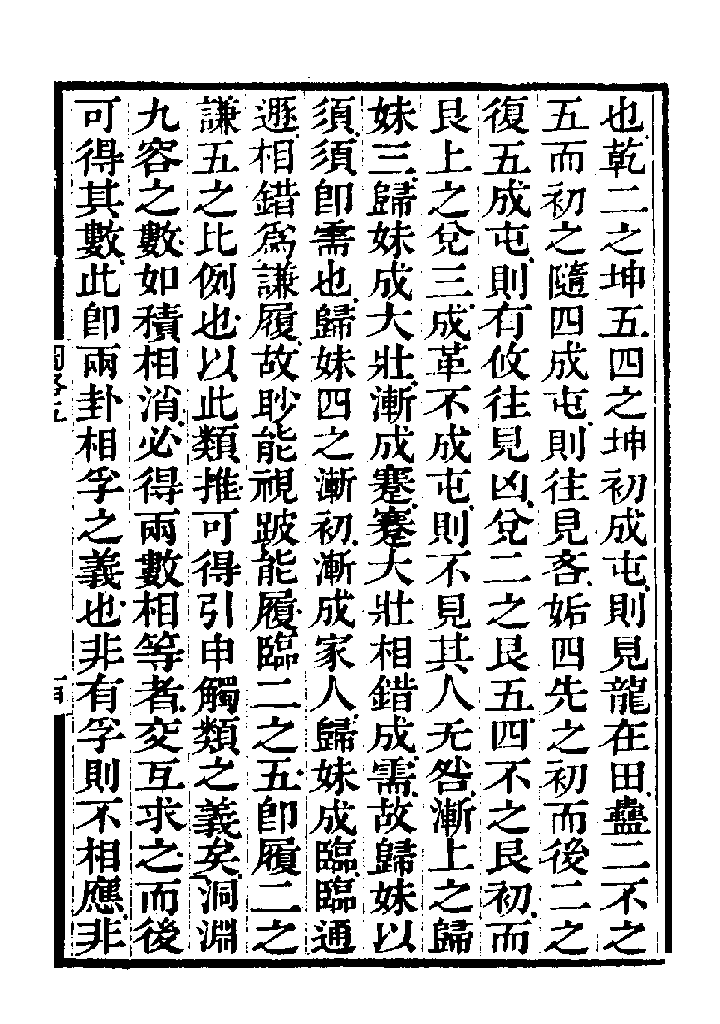 也乾二之坤五四之坤初成屯則見龍在田蠱二不之
五而初之隨四成屯則往見吝姤四先之初而後二之
復五成屯則有攸往見凶兌二之艮五四不之艮初而
艮上之兌三成革不成屯則不見其人无咎漸上之歸
妹三歸妹成大壯漸成蹇蹇大壯相錯成需故歸妹以
須須卽需也歸妹四之漸初漸成家人歸妹成臨臨通
遯相錯爲謙履故眇能視跛能履臨二之五卽履二之
謙五之比例也以此類推可得引申觸類之義矣洞淵
九容之數如積相消必得兩數相等者交互求之而後
可得其數此卽兩卦相孚之義也非有孚則不相應非